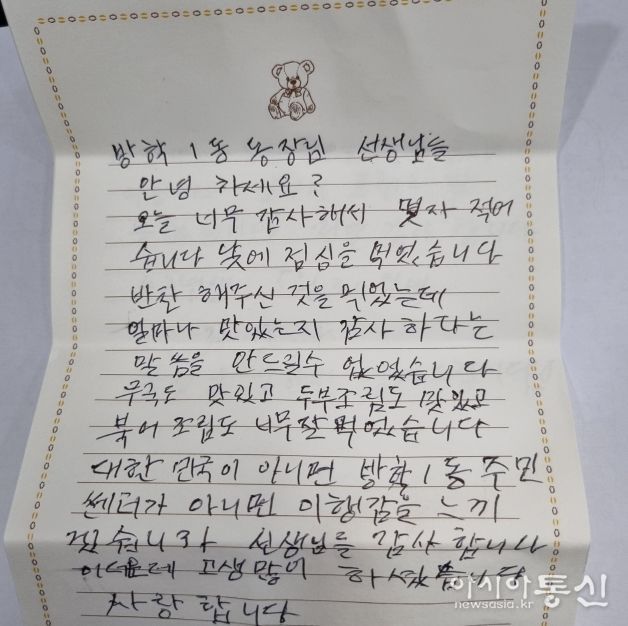 방학 1동 동장님 선생님들
안녕 하세요?
오늘 너무 감사해서 몇자 적어
습니다 낮에 점심을 먹었습니다
반찬 해주신 것을 먹었는데
얼마나 맛있는지 감사 하다는
말씀을 안드릴수 없었습니다
무국도 맛있고 두부조림도 맛있고
북어 조림도 너무 잘 먹었습니다
대한 민국이 아니면 방학1동 주민
쎈터가 아니면 이행감을 느끼
선생님들 감사 합니다
고생많이 하셨습니다
사랑 합니다
아시아통신
www.newsasia.kr